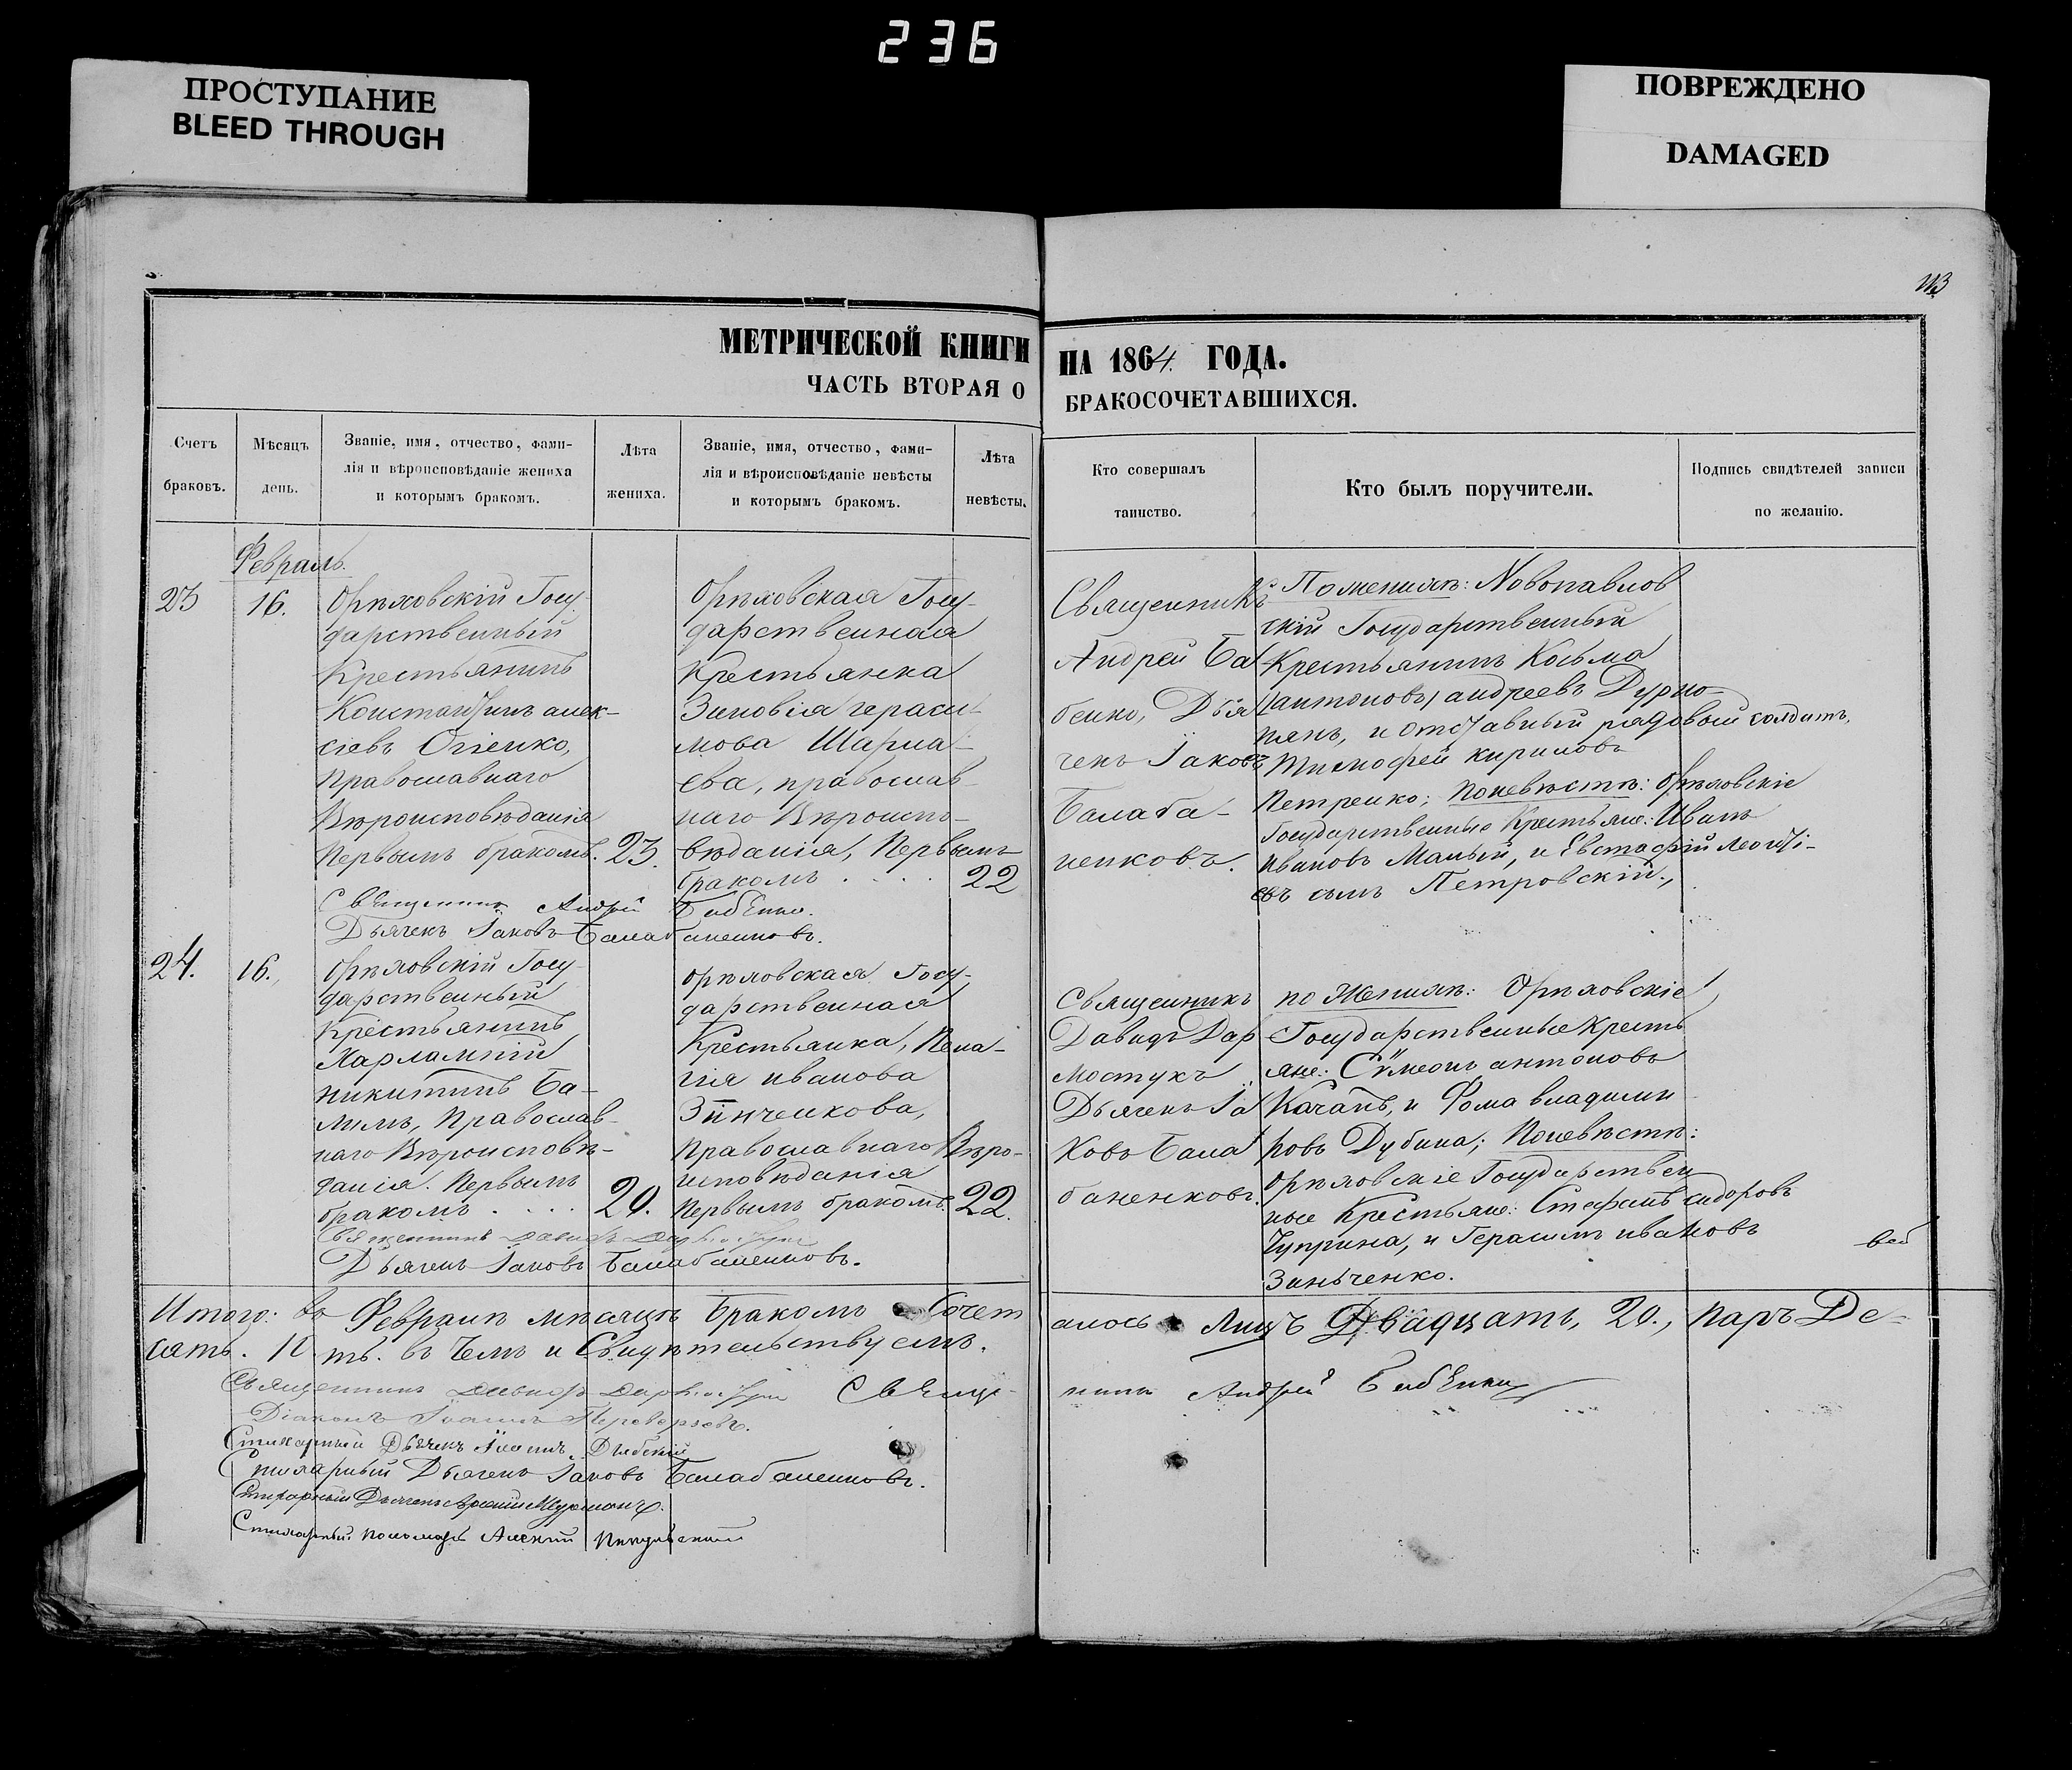 236
ПРОСТУПАНИЕ
BLEED THROUGH
ПОВРЕЖДЕНО
DAMAGED
113
МЕТРИЧЕСКОЙ КНИГИ НА 1864. ГОДА.
ЧАСТЬ ВТОРАЯ О БРАКОСОЧЕТАВШИХСЯ.
Счетъ
браковъ.
Мѣсяцъ
день.
Званіе, имя, отчество, фами-
лія и вѣроисповѣданіе жениха
и которымъ бракомъ.
Лѣта
жениха.
Званіе, имя, отчество, фами-
лія и вѣроисповѣданіе невѣсты
и которымъ бракомъ.
Лѣта
невѣсты.
Кто совершалъ
таинство.
Кто былъ поручители.
Подпись свидѣтелей записи
по желанію.
Февраль.
23
16.
Орѣховскій Госу-
дарственный
Крестьянинъ
Константинъ алек-
сіевъ Огіенко,
Православнаго
Вѣроисповѣданія
Первымъ бракомъ.
23.
Орѣховская Госу-
дарственная
Крестьянка
Зиновія гераси-
мова Шарна-
ева, православ-
наго Вѣроиспо-
вѣданія, Первымъ
бракомъ . . . .
22
Священникъ
Андрей Ба-
бенко, Дья
чекъ Іаковъ
Балаба-
ненковъ.
По женихѣ: Новопавлов
скій Государственный
Крестьянинъ Косьма
(антоновъ) андреевъ Дурно-
пянъ, и отставный рядовой солдатъ,
Тимофей кириловъ
Петренко; по невѣстѣ: Орѣховскіе
Государственные Крестьяне: Иванъ
ивановъ Малый, и Евстафій леонті-
евъ сынъ Петровскій.,
Священникъ Андрей Бабенко.
Дьячекъ Іаковъ Балабаненковъ.
24.
16.,
Орѣховскій Госу-
дарственный
Крестьянинъ
Харлампій
никитинъ Ба-
лимъ, Православ-
наго Вѣроисповѣ-
данія. Первымъ
бракомъ . . . .
20.
Орѣховская Госу-
дарственная
Крестьянка, Пела-
гія иванова
Зѣнченкова,
Православнаго Вѣро-
исповѣданія
Первымъ бракомъ.
22.
Священникъ
Давидъ Дар
мостукъ
Дьячекъ Іа
ковъ Бала
баненковъ.
по Женихѣ: Орѣховскіе
Государственные Кресть
яне: Сѵмеонъ антоновъ
Качанъ, и Фома владими
ровъ Дубина; По невѣстѣ:
Орѣховскіе Государствен
ные Крестьяне: Стефанъ сидоровъ
Чуприна, и Герасимъ ивановъ
Зинченко.
Священникъ Давидъ
Дьячекъ Іаковъ Балабаненковъ.
Итого: въ Февралѣ мѣсяцѣ бракомъ Сочет
алось Лицъ Двадцать, 20., паръ Де-
сять. 10. въ Чемъ и Свидѣтельствуемъ.
Священникъ Давидъ Священ-
никъ Андрей Бабенко
Діаконъ Іоаннъ Переверзевъ.
Стихарный Дьячекъ Іоаннъ
Стихарный Дьячекъ Іаковъ Балабаненковъ.
Стихарный Дьячекъ
Стихарный пономарь Алексій